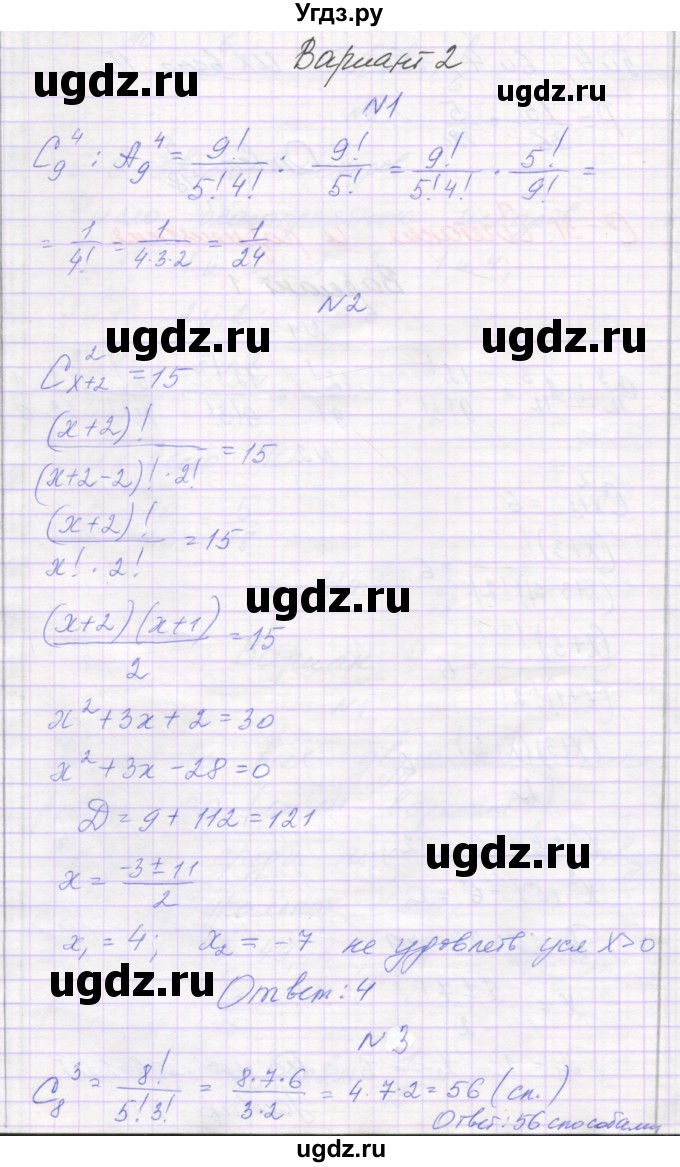 Угдз.ру
Вариант 2
ugdz.ru ugdz.ru
N1
C₉⁴ : A₉⁴ = 9!/(5!4!) : 9!/5! = 9!/(5!4!) · 5!/9! =
= 1/4! = 1/(4·3·2) = 1/24
N2
ugdz.ru ugdz.ru
C²ₓ₊₂ = 15
(x+2)!/((x+2-2)!·2!) = 15
(x+2)!/(x!·2!) = 15
ugdz.ru
(x+2)(x+1)/2 = 15
x²+3x+2=30
x²+3x-28=0
D=9+112=121
ugdz.ru
x = (-3±11)/2
x₁=4; x₂=-7 не удовлетв усл x>0
ugdz.ru
Ответ: 4
ugdz.ru
N3
C₈³ = 8!/(5!3!) = (8·7·6)/(3·2) = 4·7·2=56 (сп.)
Ответ: 56 способами
ugdz.ru